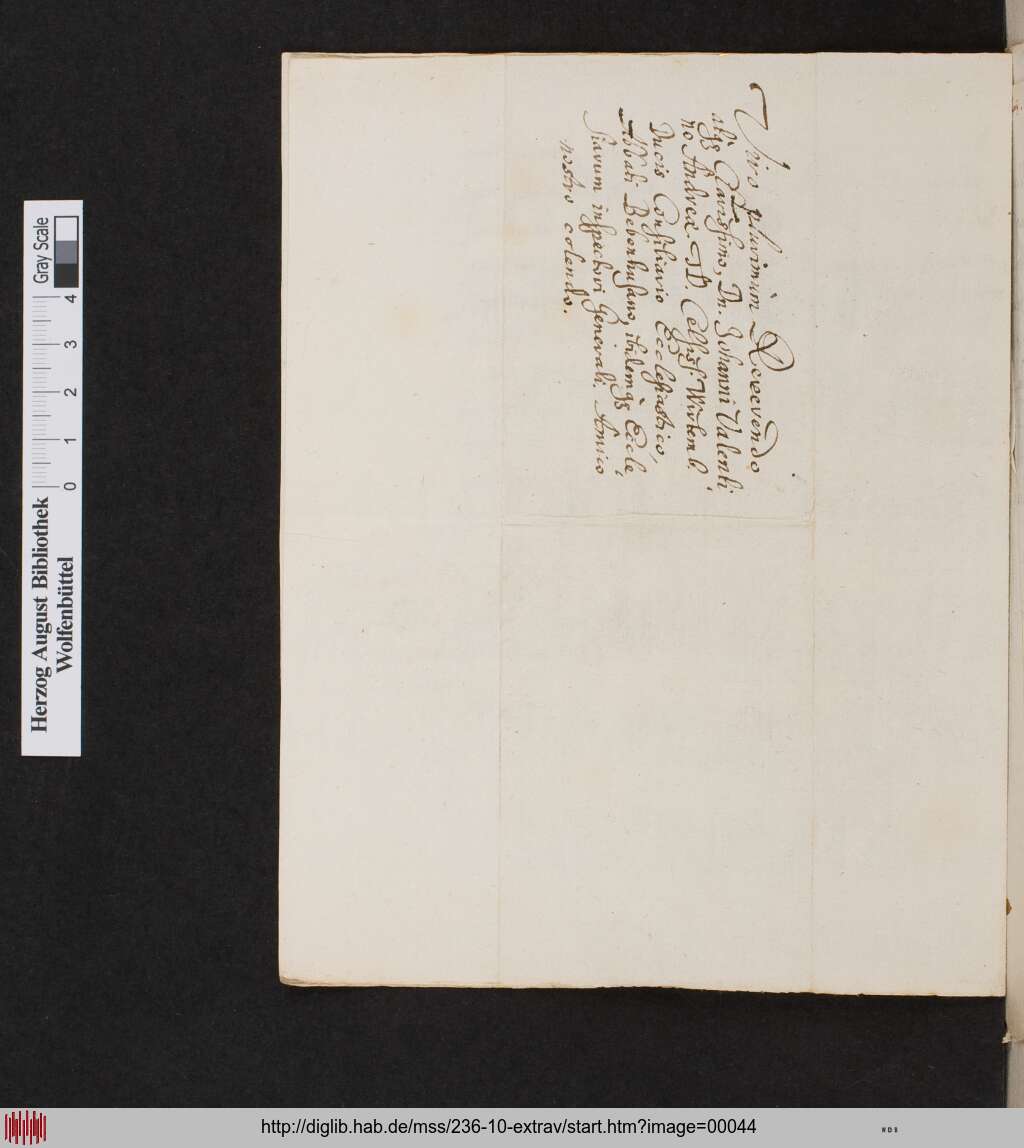 Viro plurimùm Reverendo
atqꝫ Clarissimo, Dn. Johanni Valenti
no Andreæ. D. Celsiss. Wirtemb.
Ducis Consiliario Ecclesiastico,
Abbati Bebenhusano, ibidemqꝫ Eccle
siarum inspectori Generali. Amico
nostro colendo.
Herzog August Bibliothek
Wolfenbüttel
0 1 2 3 4
Gray Scale
http://diglib.hab.de/mss/236-10-extrav/start.htm?image=00044
WDB